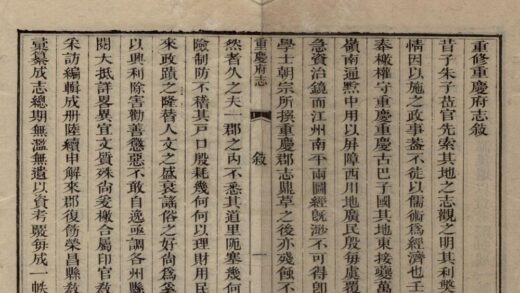 重修重慶府志敘
昔子朱子蒞官先索其地之志觀之明其利弊
情因以施之政事葢不徒以儒術為經濟也壬
奉檄權守重慶重慶古巴子國其地東接夔萬
嶺南通黔中用以屏障西川地廣民殷每虞覆
急資治鏡而江州南平兩圖經旣渺不可得卽
學士朝宗所撰重慶郡志草之後亦殘蝕不
然者久之夫一郡之內不悉其道里阨塞幾何
重慶府志
敘
一
險制防不稽其戶口殷耗幾何何以理財用民
來政蹟之隆替人文之盛衰謠俗之好尚為
以興利除害勸善懲惡不敢自逸亟調各州縣
閱大抵詳畧異宜文質殊尚爰檄合屬印官敎
采訪編輯成冊陸續申解來郡復飭榮昌縣敎
彙纂成志總期無濫無遺以資考覈每成一帙